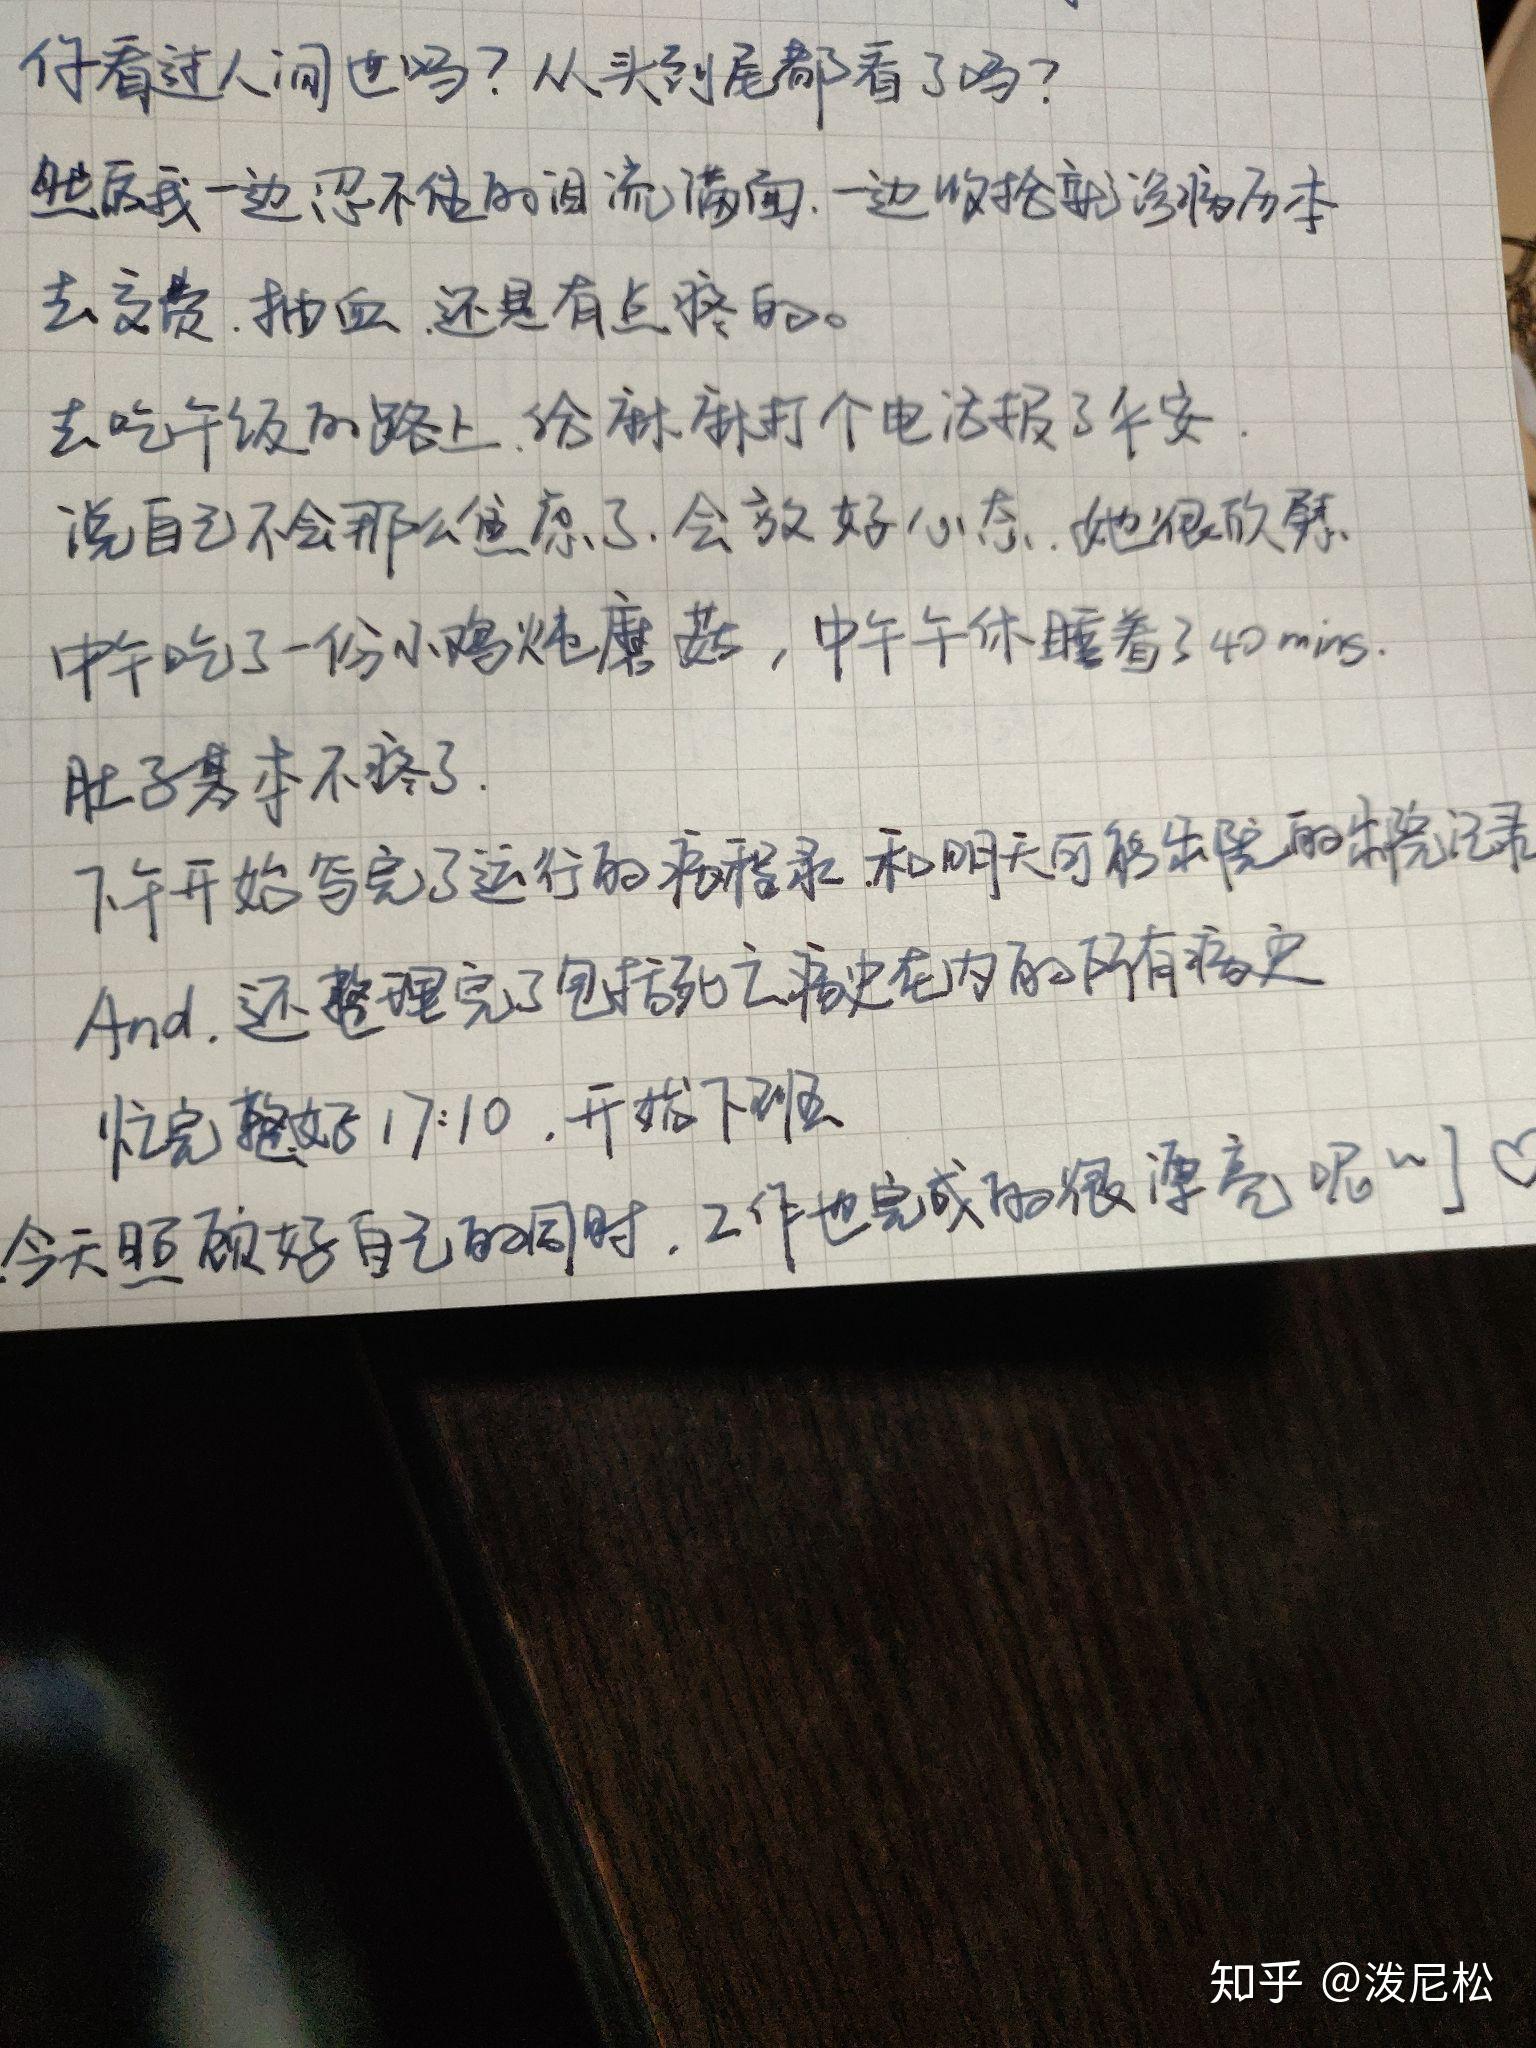 你看过人间世吗？从头到尾都看了吗？
然后我一边忍不住的泪流满面，一边收拾就诊病历本
去交费，抽血，还是有点疼的。
去吃午饭的路上，给麻麻打个电话报了平安，
说自己不会那么焦虑了，会放好心态，她很欣慰
中午吃了一份小鸡炖蘑菇，中午午休睡着了40mins.
肚子基本不疼了.
下午开始写完了运行的病程录，和明天可能出院的出院记录
And，还整理完了包括死亡病史在内的所有病史
忙完整好17:10，开始下班
今天照顾好自己的同时，工作也完成的很漂亮呢~】♡
知乎 @泼尼松